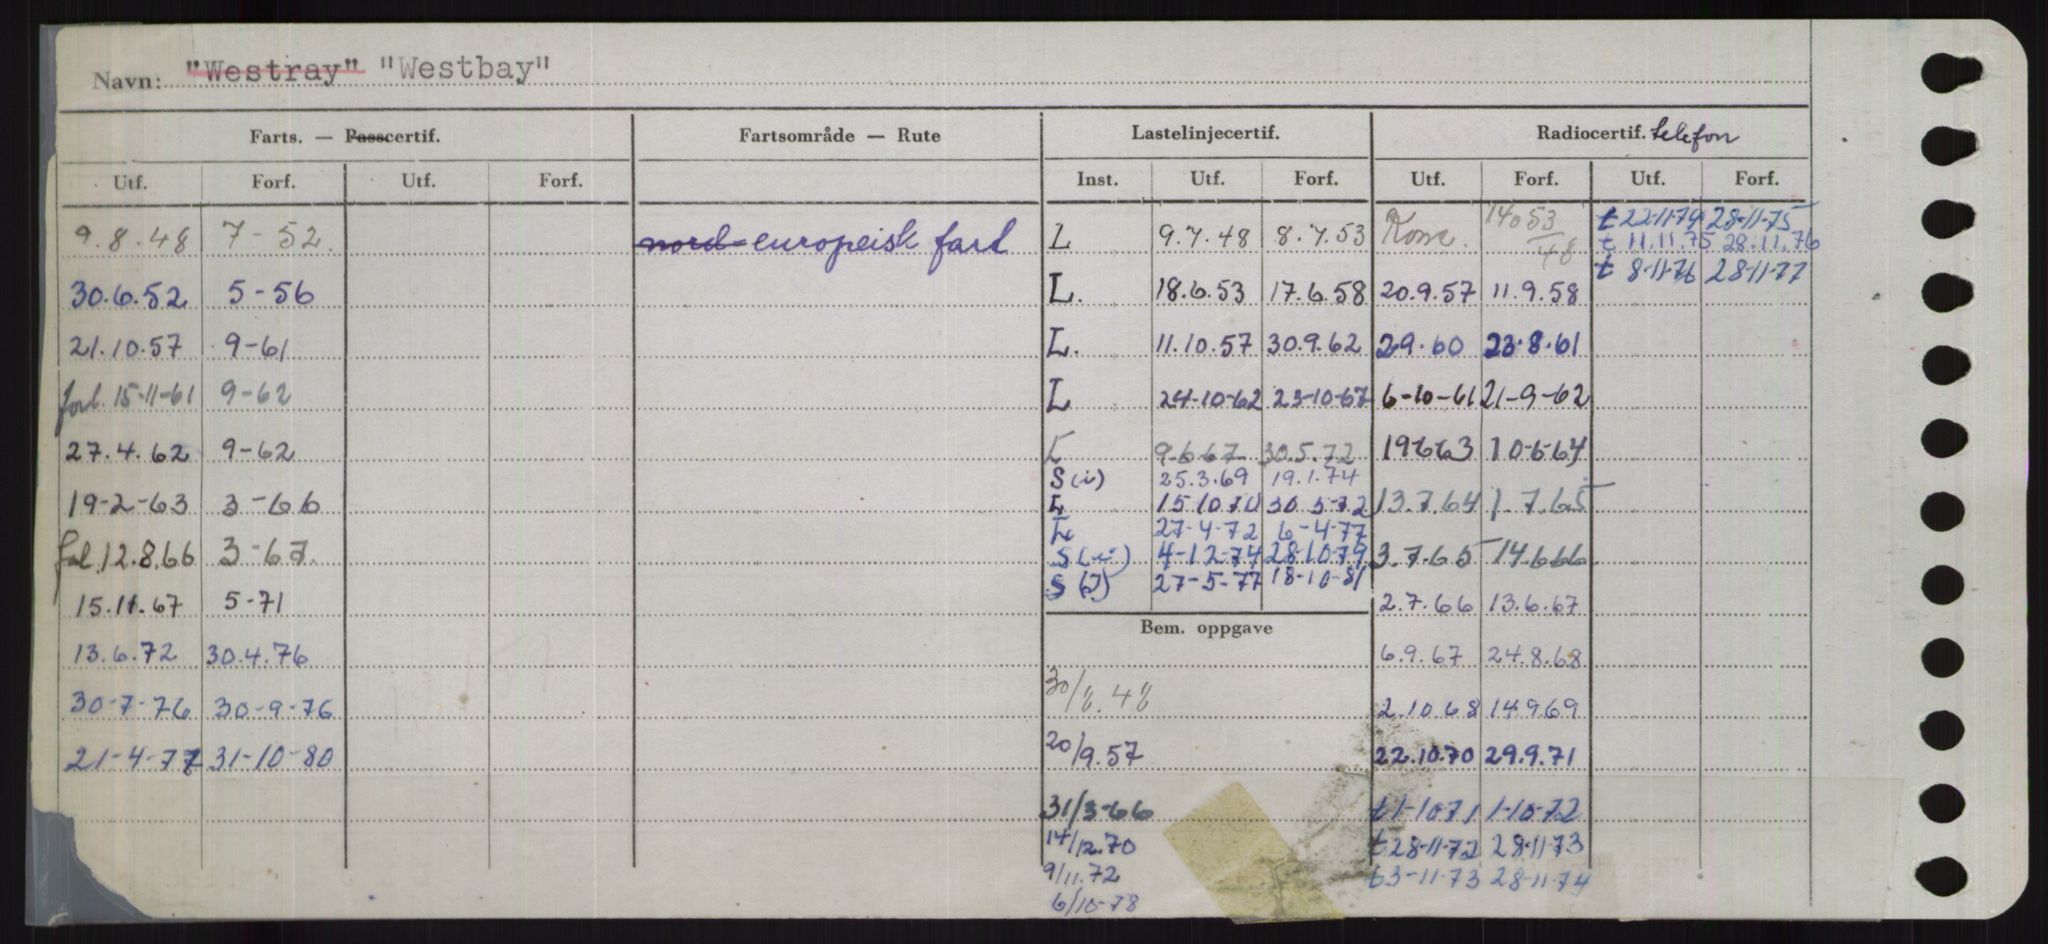 Navn: "Westray" "Westbay"
Farts. — Passcertif. Fartsområde — Rute Lastelinjecertif. Radiocertif. telefon
Utf. Forf. Utf. Forf. Inst. Utf. Forf. Utf. Forf. Utf. Forf.
9.8.48 7-52 nord-europeisk fart L 9.7.48 8.7.53 t 22-11-74 28-11-75
t 11.11.75 28.11.76
t 8-11-76 28-11-77
30.6.52 5-56 L. 18.6.53 17.6.58 20.9.57 11.9.58
21.10.57 9-61 L. 11.10.57 30.9.62 2.9.60 23.8.61
forl. 15-11-61 9-62 L 24-10-62 23-10-67 6-10-61 21-9-62
27.4.62 9-62 L 9.6.67 30.5.72 19663 10-6-64
S(i) 25.3.69 19.1.74
19-2-63 3-66 L 15 10 70 30 5-72 13.7.64 1.7.65
L 27-4-72 6-4-77
fol. 12.8.66 3-67. S(i) 4-12-74 28-10-79 3.7.65 14.6.66
15.11.67 5-71 S 27-5-77 18-10-81 2.7.66 13.6.67
Bem. oppgave
13.6.72 30.4.76 6.9.67 24.8.68
30-7-76 30-9-76 2.10.68 14.9.69
21-4-77 31-10-80 20/9.57 22.10.70 29.9.71
31/3-66 t 1-10-71 1-10-72
14/12.70 t 28-11-72 28-11-73
9/11.72 t 3-11-73 28-11-74
6/10-78